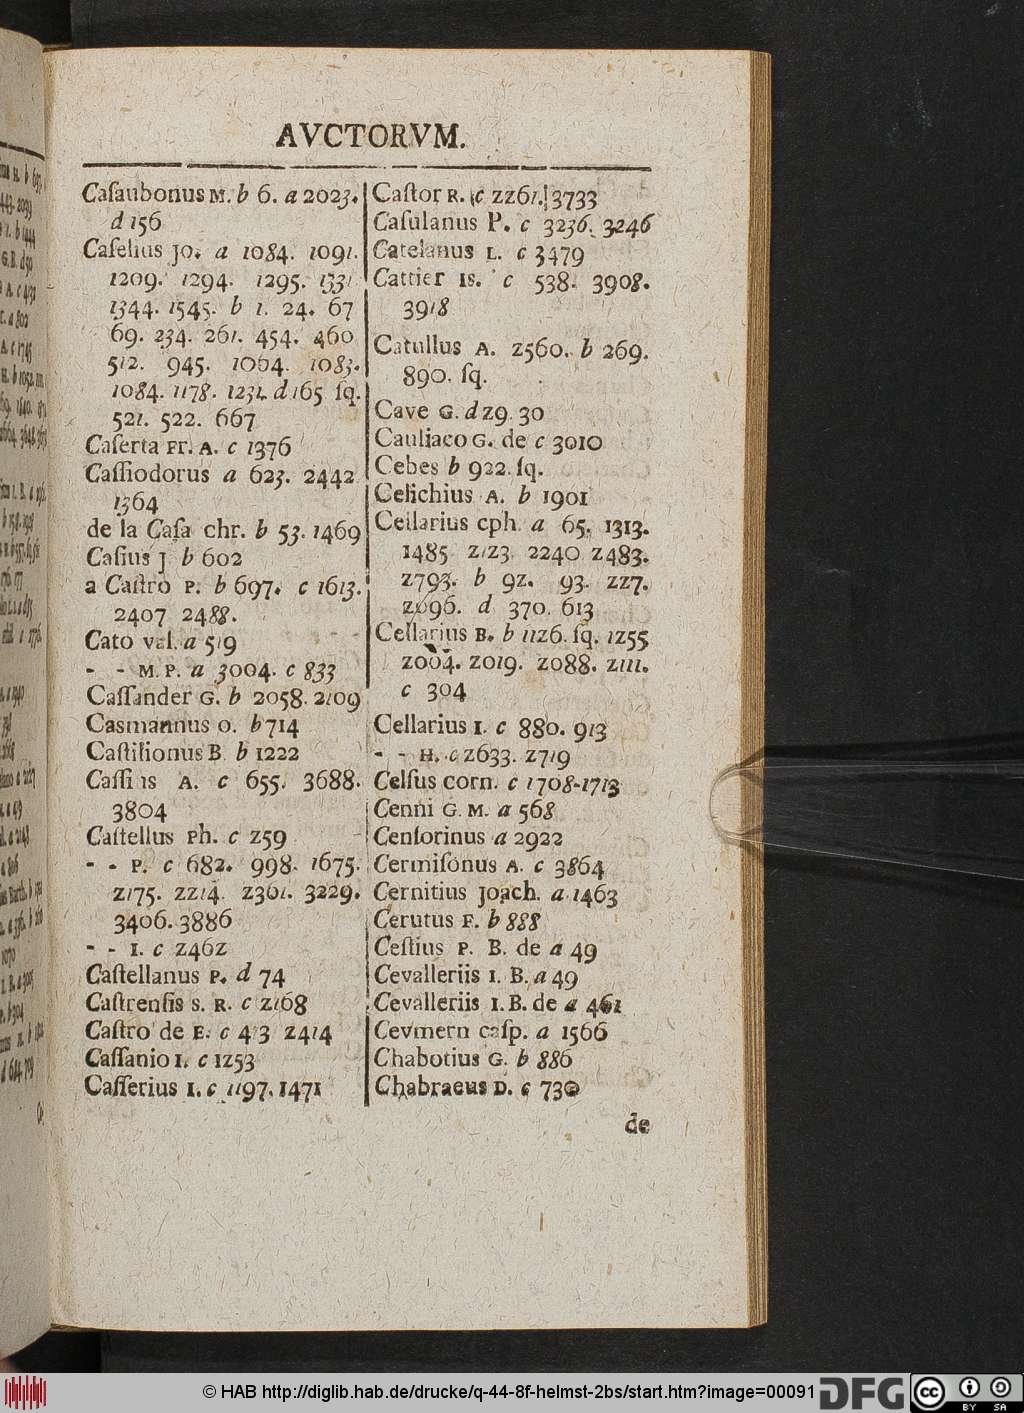 AVCTORVM.
Caſaubonus M. b 6. a 2023.
d 156
Caſelius Jo. a 1084. 1091.
1209. 1294. 1295. 1331
1344. 1545. b 1. 24. 67
69. 234. 261. 454. 460
512. 945. 1064. 1083.
1084. 1178. 1231. d 165 ſq.
521. 522. 667
Caſerta Fr. A. c 1376
Caſſiodorus a 623. 2442
1364
de la Caſa chr. b 53. 1469
Caſius J b 602
a Caſtro P. b 697. c 1613.
2407 2488.
Cato val. a 519
- - M. P. a 3004. c 833
Caſſander G. b 2058. 2109
Casmannus O. b 714
Caſtilionus B. b 1222
Caſſius A. c 655. 3688.
3804
Caſtellus Ph. c 259
- - P. c 682. 998. 1675.
2175. 2214. 2361. 3229.
3406. 3886
- - I. c 2462
Caſtellanus P. d 74
Caſtrenſis S. R. c 2168
Caſtro de E. c 413 2414
Caſſanio I. c 1253
Caſſerius I. c 1197. 1471
Caſtor R. c 2261. 3733
Caſulanus P. c 3236. 3246
Catelanus L. c 3479
Cattier Is. c 538. 3908.
3918
Catullus A. 2560. b 269.
890. ſq.
Cave G. d 29. 30
Cauliaco G. de c 3010
Cebes b 922. ſq.
Celichius A. b 1901
Cellarius cph. a 65. 1313.
1485 2123 2240 2483.
2793. b 92. 93. 227.
2096. d 370. 613
Cellarius B. b 1126. ſq. 1255
2004. 2019. 2088. 2111.
c 304
Cellarius I. c 880. 913
- - H. c 2633. 2719
Celſus corn. c 1708-1713
Cenni G. M. a 568
Cenſorinus a 2922
Cermiſonus A. c 3864
Cernitius Joach. a 1463
Cerutus F. b 888
Ceſtius P. B. de a 49
Cevalleriis I. B. a 49
Cevalleriis I. B. de a 461
Cevmern caſp. a 1566
Chabotius G. b 886
Chabraeus D. c 730
de
© HAB http://diglib.hab.de/drucke/q-44-8f-helmst-2bs/start.htm?image=00091
DFG
cc
BY SA